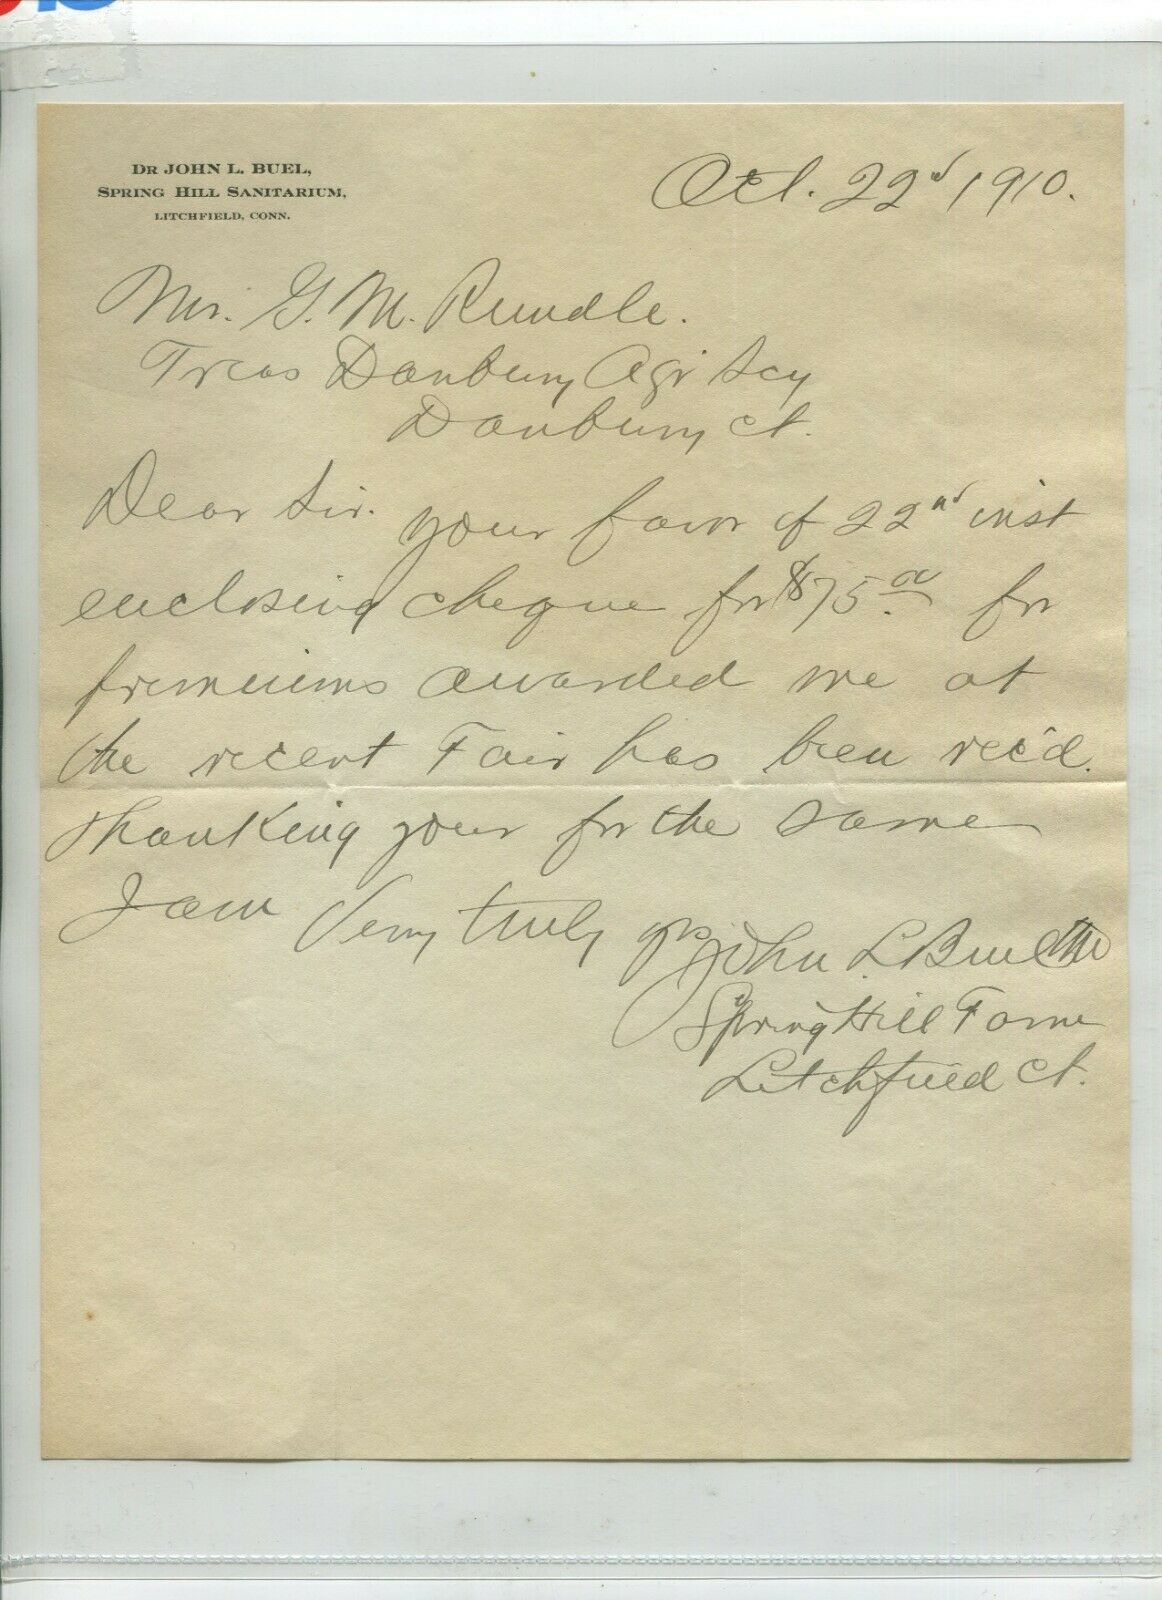 DR JOHN L. BUEL,
SPRING HILL SANITARIUM,
LITCHFIELD, CONN.
Oct. 22d 1910.
Mr. G. M. Rundle.
Treas Danbury Agr Socy
Danbury Ct.
Dear Sir. Your favor of 22nd inst
enclosing cheque for $75.00 for
premiums awarded me at
the recent Fair has been rec'd.
Thanking your for the same
I am Very truly yrs John L. Buel
Spring Hill Farm
Litchfield Ct.